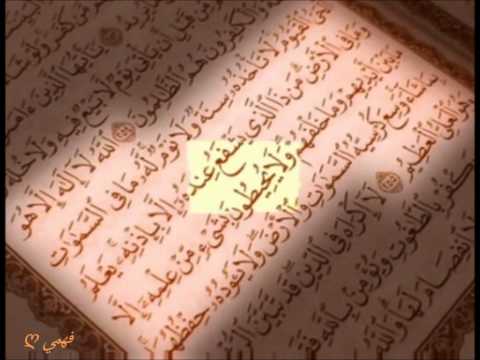 يَٰٓأَيُّهَا ٱلَّذِينَ ءَامَنُوٓا۟
مِّن قَبْلِ أَن يَأْتِىَ يَوْمٌ لَّا بَيْعٌ فِيهِ وَلَا خُلَّةٌ
وَٱلْكَٰفِرُونَ هُمُ ٱلظَّٰلِمُونَ ٢٥٤ ٱللَّهُ لَآ إِلَٰهَ إِلَّا هُوَ
ٱلْقَيُّومُ لَا تَأْخُذُهُۥ سِنَةٌ وَلَا نَوْمٌ لَّهُۥ مَا فِى ٱلسَّمَٰوَٰتِ
وَمَا فِى ٱلْأَرْضِ مَن ذَا ٱلَّذِى يَشْفَعُ عِندَهُۥٓ إِلَّا بِإِذْنِهِۦ يَعْلَمُ
بَيْنَ أَيْدِيهِمْ وَمَا خَلْفَهُمْ وَلَا يُحِيطُونَ بِشَىْءٍ مِّنْ عِلْمِهِۦٓ إِلَّا
شَآءَ وَسِعَ كُرْسِيُّهُ ٱلسَّمَٰوَٰتِ وَٱلْأَرْضَ وَلَا يَـُٔودُهُۥ حِفْظُهُمَا
وَهُوَ ٱلْعَلِىُّ ٱلْعَظِيمُ ٢٥٥ لَآ إِكْرَاهَ فِى ٱلدِّينِ قَد تَّبَيَّنَ
يَكْفُرْ بِٱلطَّٰغُوتِ وَيُؤْمِنۢ بِٱللَّهِ
لَا ٱنفِصَامَ لَهَا وَٱللَّهُ
فهمي